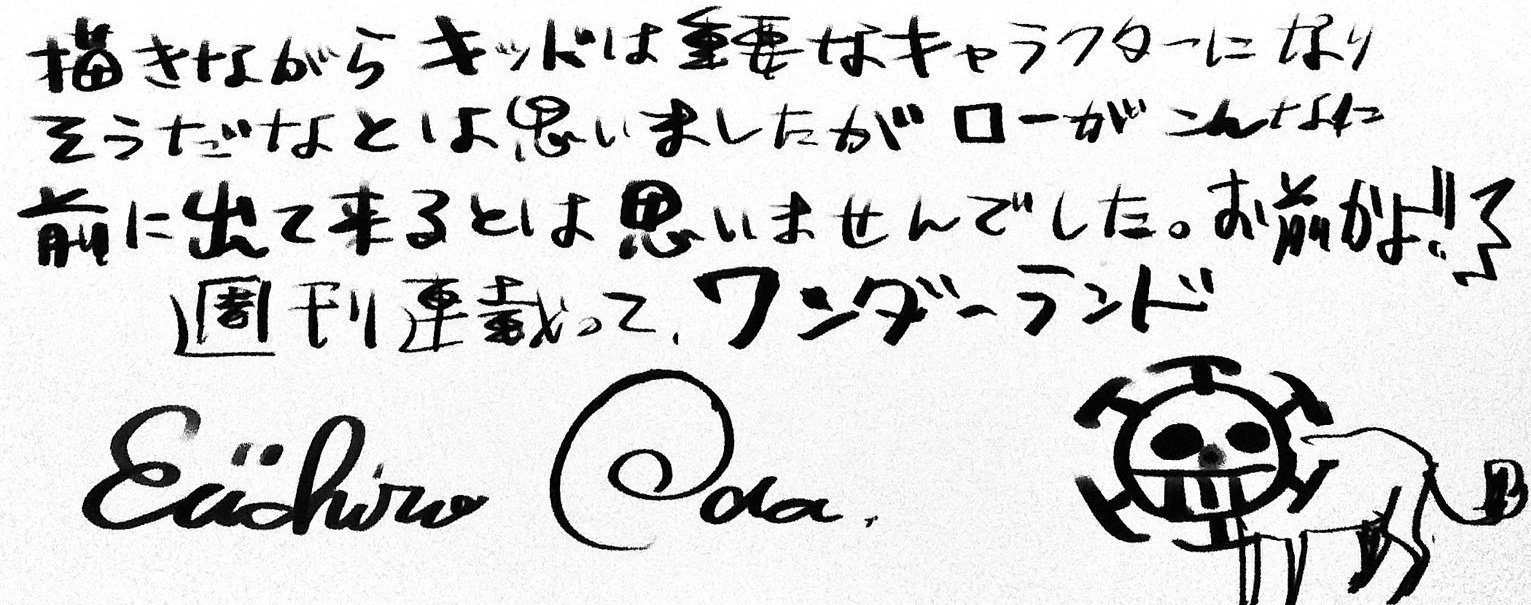 描きながらキッドは重要なキャラクターになり
そうだなとは思いましたがローがこんなに
前に出て来るとは思いませんでした。お前かよ!!
週刊連載って、ワンダーランド
Eiichiro Oda.